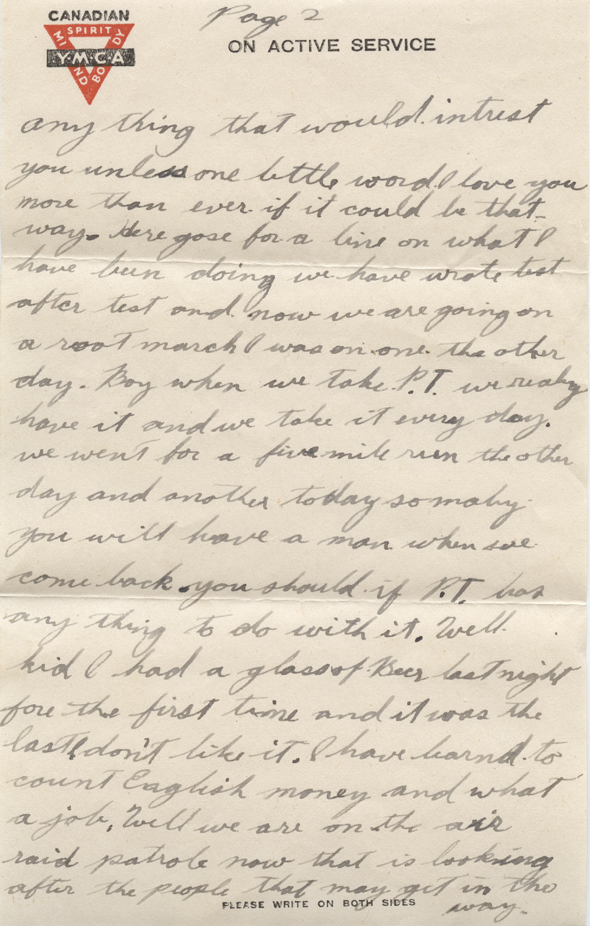 CANADIAN
SPIRIT
MIND BODY
Y·M·C·A
Page 2
ON ACTIVE SERVICE
any thing that would intrest
you unless one little word I love you
more than ever if it could be that
way. Here gose for a line on what I
have been doing we have wrote test
after test and now we are going on
a root march I was on one the other
day. Boy when we take P.T. we realy
have it and we take it every day.
we went for a five mile run the other
day and another today so maby
you will have a man when we
come back. you should if P.T. has
any thing to do with it. Well
kid I had a glass of Beer last night
fore the first time and it was the
last I don't like it. I have larnd to
count English money and what
a job. Well we are on the air
raid patrole now that is looking
after the people that may get in the
way.
PLEASE WRITE ON BOTH SIDES